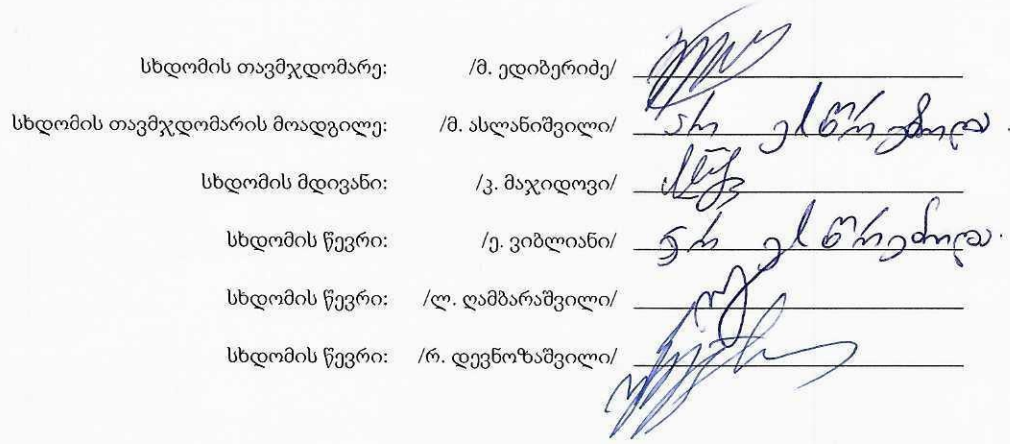 სხდომის თავმჯდომარე: /მ. ედიბერიძე/
სხდომის თავმჯდომარის მოადგილე: /მ. ასლანიშვილი/ არ ესწრებოდა.
სხდომის მდივანი: /კ. მაჯიდოვი/
სხდომის წევრი: /ე. ვიბლიანი/ არ ესწრებოდა.
სხდომის წევრი: /ლ. ღამბარაშვილი/
სხდომის წევრი: /რ. დევნოზაშვილი/